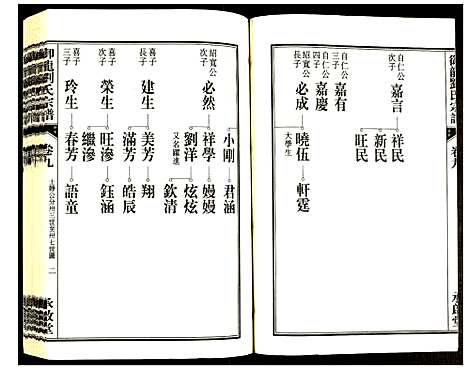 御龍劉氏宗譜
卷九
自仁公
次子
嘉言
祥民
新民
旺民
自仁公
三子
嘉有
自仁公
四子
嘉慶
紹寬公
長子
必成
曉伍
軒霆
大學生
小剛
君涵
紹寬公
次子
必然
祥學
嫚嫚
劉洋
炫炫
又名躍進
欽清
喜子
長子
建生
美芳
翔
滿芳
皓辰
喜子
次子
榮生
旺滲
鈺涵
繼滲
喜子
三子
玲生
春芳
語童
御龍劉氏宗譜
卷九
二
永啟堂